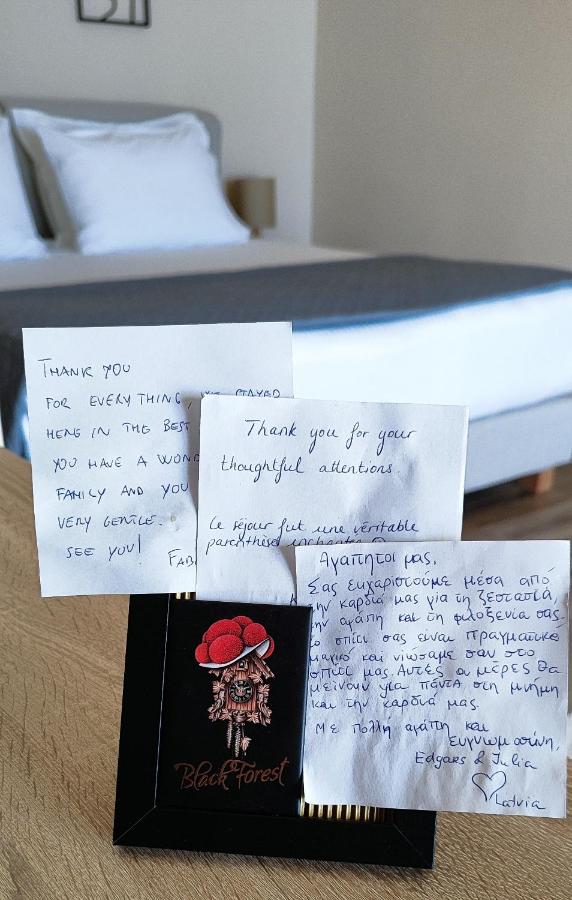 THANK YOU
FOR EVERYTHING, WE STAYED
HERE IN THE BEST
YOU HAVE A
FAMILY AND YOU
VERY GENTLE.
SEE YOU!
Thank you for your
thoughtful attentions.
Le séjour fut une véritable
parenthèse enchantée
Αγαπητοί μας,
Σας ευχαριστούμε μέσα από
την καρδιά μας για τη ζεστασιά,
την αγάπη και τη φιλοξενία σας.
το σπίτι σας είναι πραγματικό
μαγικό και νιώσαμε σαν στο
σπίτι μας. Αυτές οι μέρες θα
μείνουν για πάντα στη μνήμη
και την καρδιά μας.
Με πολλή αγάπη και
ευγνωμοσύνη,
Edgars & Julia
Latvia
Black Forest